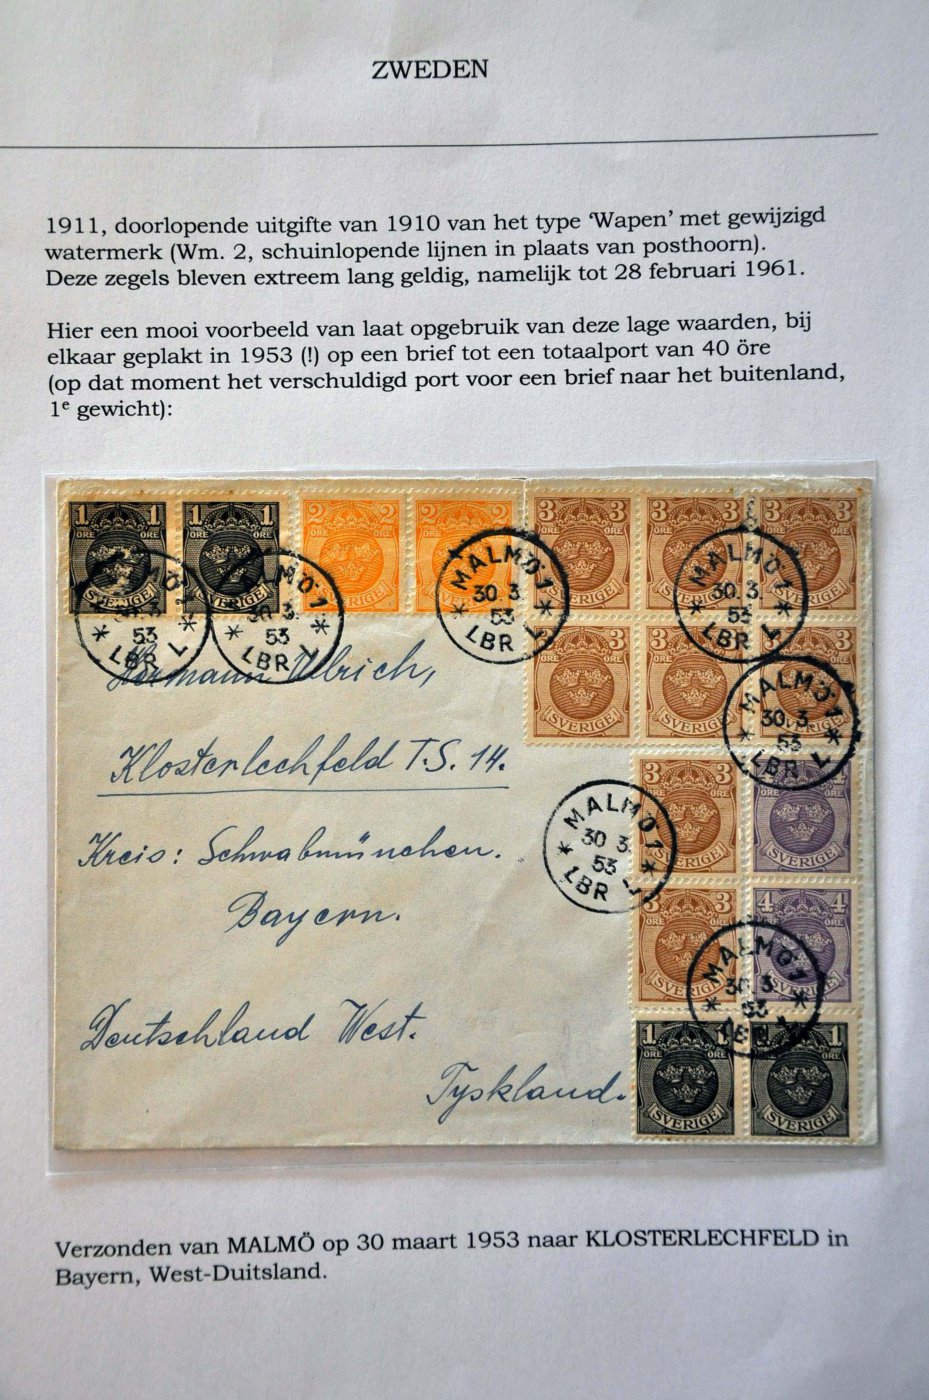 ZWEDEN
1911, doorlopende uitgifte van 1910 van het type ‘Wapen’ met gewijzigd
watermerk (Wm. 2, schuinlopende lijnen in plaats van posthoorn).
Deze zegels bleven extreem lang geldig, namelijk tot 28 februari 1961.
Hier een mooi voorbeeld van laat opgebruik van deze lage waarden, bij
elkaar geplakt in 1953 (!) op een brief tot een totaalport van 40 öre
(op dat moment het verschuldigd port voor een brief naar het buitenland,
1e gewicht):
1 1 1 1 2 2 2 2 3 3 3 3 3 3
ÖRE ÖRE ÖRE ÖRE ÖRE ÖRE ÖRE ÖRE
SVERIGE SVERIGE
MALMÖ 1
30. 3.
53
LBR L
MALMÖ 1
30. 3.
53
LBR L
MALMÖ 1
30. 3.
53
LBR L
MALMÖ 1
30. 3.
53
LBR L
Hermann Ulrich,
SVERIGE SVERIGE
MALMÖ 1
30. 3.
53
LBR L
Klosterlechfeld T.S. 14.
3 3 4
ÖRE ÖRE
SVERIGE SVERIGE
MALMÖ 1
30 3
53
LBR
Kreis: Schwabmünchen.
Bayern.
3 4 4
ÖRE ÖRE
SVERIGE
MALMÖ 1
30. 3.
53
LBR
Deutschland West.
1 1 1
ÖRE ÖRE ÖRE
SVERIGE SVERIGE
Tyskland.
Verzonden van MALMÖ op 30 maart 1953 naar KLOSTERLECHFELD in
Bayern, West-Duitsland.